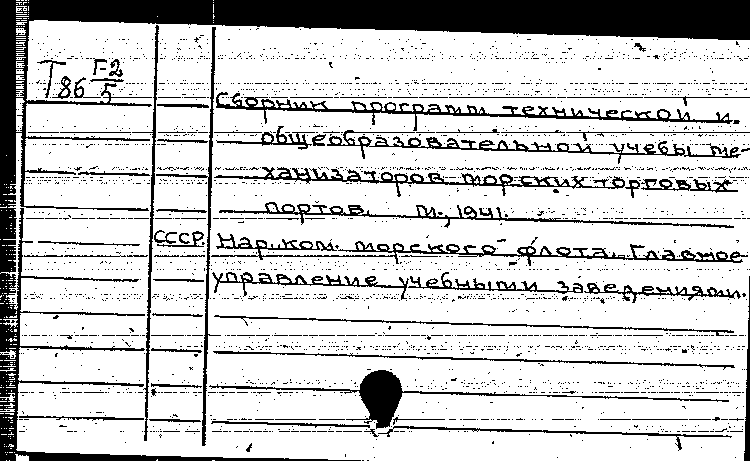 Т86 Г-2
5
Сборник программ технической и.
общеобразовательной учебы ме-
ханизаторов морских торговых
портов. М., 1941.
СССР. Нар. ком. морского флота. Главное
управление учебными заведениями.